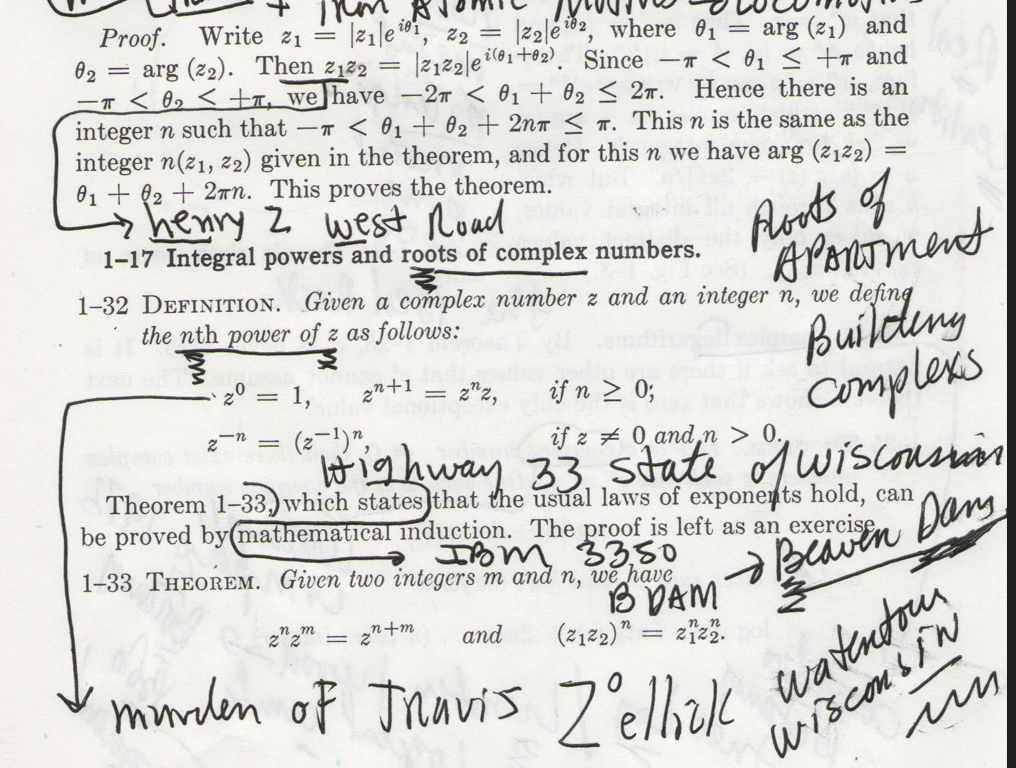 + Iron Atomic
Proof. Write z₁ = |z₁|e^{iθ₁}, z₂ = |z₂|e^{iθ₂}, where θ₁ = arg (z₁) and
θ₂ = arg (z₂). Then z₁z₂ = |z₁z₂|e^{i(θ₁+θ₂)}. Since −π < θ₁ ≤ +π and
−π < θ₂ ≤ +π, we have −2π < θ₁ + θ₂ ≤ 2π. Hence there is an
integer n such that −π < θ₁ + θ₂ + 2nπ ≤ π. This n is the same as the
integer n(z₁, z₂) given in the theorem, and for this n we have arg (z₁z₂) =
θ₁ + θ₂ + 2πn. This proves the theorem.
henry 2 west Road
Roots of
APARTMENT
1–17 Integral powers and roots of complex numbers.
1–32 DEFINITION. Given a complex number z and an integer n, we define
the nth power of z as follows:
Building
complexs
z° = 1, zⁿ⁺¹ = zⁿz, if n ≥ 0;
z⁻ⁿ = (z⁻¹)ⁿ, if z ≠ 0 and n > 0.
Highway 33 State of wisconsin
Theorem 1–33, which states that the usual laws of exponents hold, can
be proved by mathematical induction. The proof is left as an exercise.
IBM 3350
Beaver Dam
1–33 THEOREM. Given two integers m and n, we have
B DAM
zⁿzᵐ = zⁿ⁺ᵐ and (z₁z₂)ⁿ = z₁ⁿz₂ⁿ.
watertown
wisconsin
murder of Travis Z° ellick